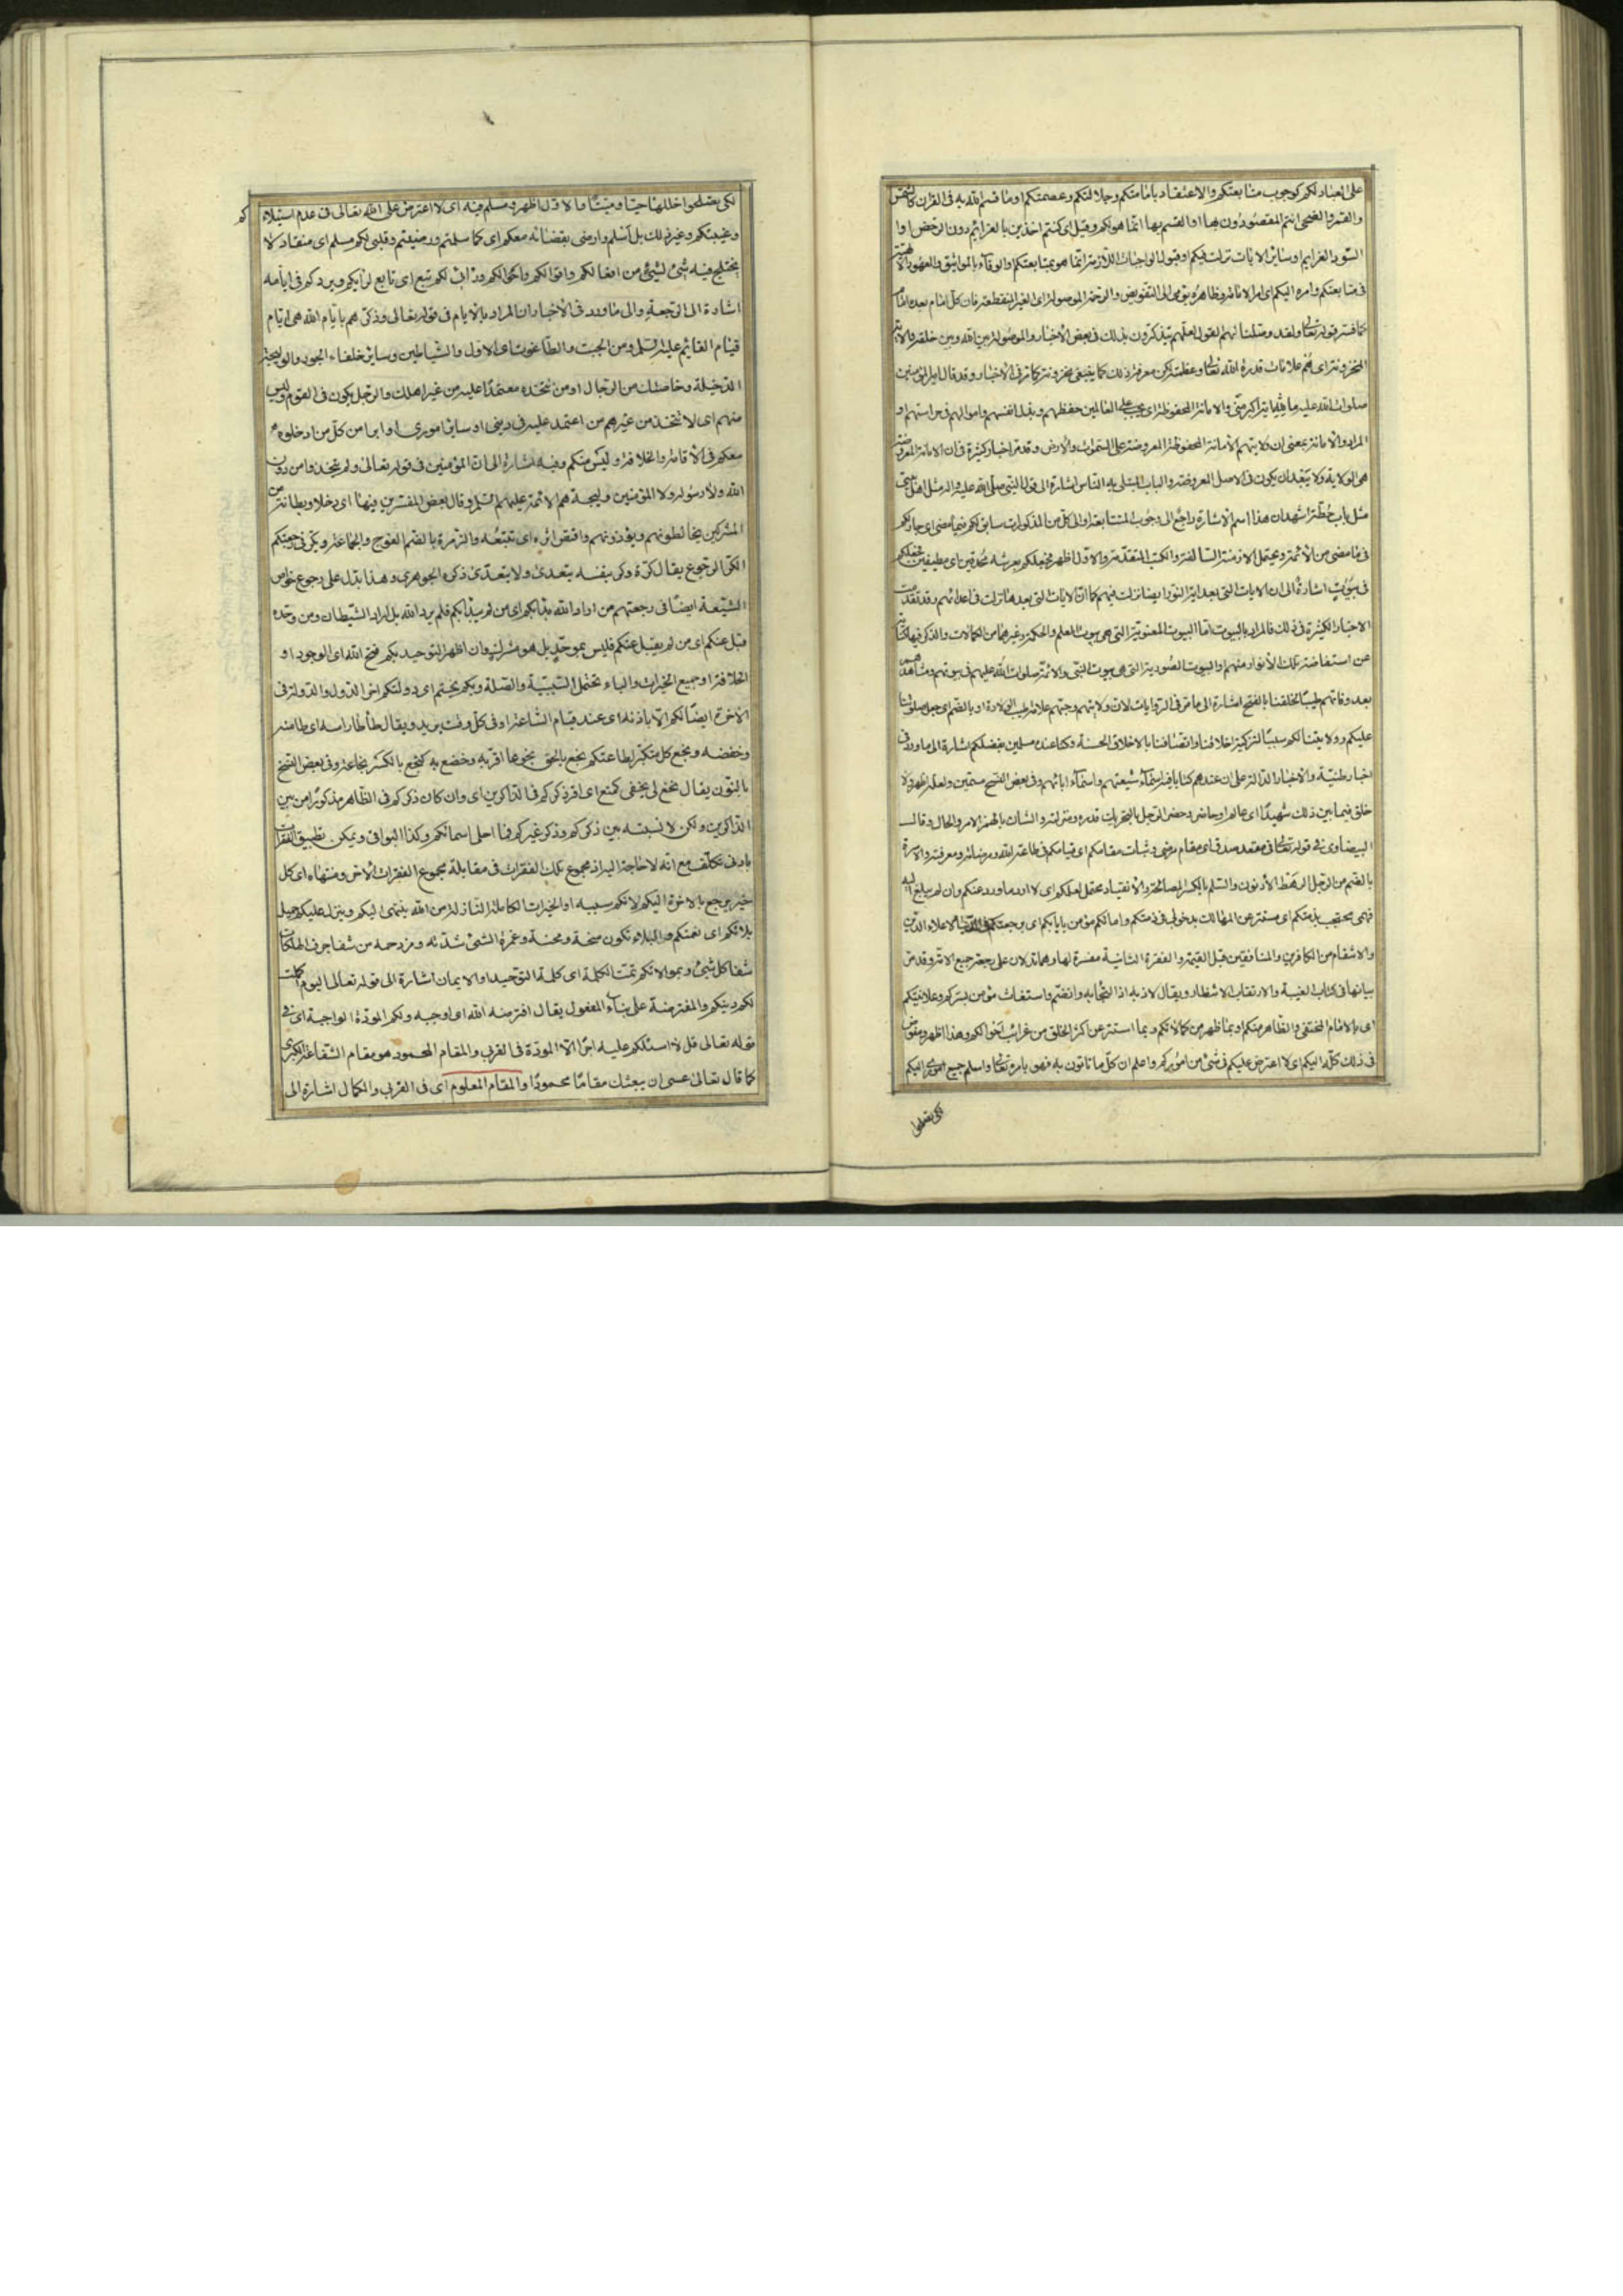 على العباد لكم كوجوب متابعتكم والاعتقاد بامامتكم وجلالتكم وعصمتكم او ما قسم الله به فى القران كالشمس
والقمر والضحى انتم المقصودون بها او القسم بها انما هو لكم وقيل اى كنتم اخذين بالعزايم دون الرخص او
السور العزايم او ساير الايات نزلت فيكم او قبول الواجبات اللازمة انما هو بمتابعتكم والوفاء بالمواثيق والعهود
فى متابعتكم وامره اليكم اى امر الامامة وظاهره يومى الى التفويض والرحمة الموصولة اى الغير المنقطعة فان كل امام بعده امام
كما فسر قوله تعالى ولقد وصلنا لهم القول لعلهم يتذكرون بذلك فى بعض الاخبار او الموصولة بين الله وبين خلقه والاية
المخزونة اى هم علامات قدرة الله تعالى وعظمته لكن معرفة ذلك كما ينبغى مخزونة كما فى الاخبار وقد قال امير المؤمنين
صلوات الله عليه ما لله اية اكبر منى والامانة المحفوظة اى يجب على العالمين حفظهم وبذل انفسهم واموالهم فى حراستهم او
المراد والامانة بمعنى ان ولايتهم الامانة المحفوظة المعروضة على السموات والارض وقد مر اخبار كثيرة فى ان الامانة المعروضة
هى الولاية ولا يبعد ان يكون فى الاصل المعروضة والباب المبتلى به الناس اشارة الى قول النبى صلى الله عليه واله مثل اهل بيتى
مثل باب حطة اشهد ان هذا اسم الاشارة راجع الى وجوب المتابعة او الى كل من المذكورات سابق لكم فيما مضى اى جار لكم
فى ما مضى من الائمة ويحتمل الازمنة السالفة والكتب المتقدمة والاول اظهر فجعلكم بعرشه محدقين اى مطيفين فجعلكم
فى بيوت اشارة الى ان الايات التى بعد اية النور ايضا نزلت فيهم كما ان الايات التى بعدها نزلت فى اعدائهم وقد تقدمت
الاخبار الكثيرة فى ذلك فالمراد بالبيوت اما البيوت المعنوية التى هى بيوت العلم والحكمة وغيرهما من الكمالات والذكر فيها كناية
عن استفاضة تلك الانوار منهم او البيوت الصورية التى هى بيوت النبى والائمة صلوات الله عليهم فى حيوتهم ومشاهدهم
بعد وفاتهم طيبا لخلقنا بالفتح اشارة الى ما مر فى الروايات ان ولايتهم وحبهم علامة طيب الولادة او بالضم اى جعل صلواتنا
عليكم وولايتنا لكم سببا لتزكية اخلاقنا واتصافنا بالاخلاق الحسنة وكنا عنده مسلمين بفضلكم اشارة الى ما ورد فى
اخبار طينية والاخبار الدالة على ان عندهم كتابا فيه اسماء شيعتهم واسماء ابائهم وفى بعض النسخ مسمين ولعله اظهر ولا
خلق فيما بين ذلك شهيدا اى عالم او حاضر وخطر الرجل بالتحريك قدره ومنزلته والشان بالهمز الامر والحال وقال
البيضاوى فى قوله تعالى فى مقعد صدق اى مقام مرضى وثبات مقامكم اى قيامكم فى طاعة الله ومرضاته ومعرفته والاسرة
بالضم من الرجل الرهط الادنون والسلم بالكسر المصالحة والانقياد محتمل لعلمكم اى لا ارد ما ورد عنكم وان لم يبلغ اليه
فهمى محتجب بذمتكم اى مستتر عن المهالك بدخولى فى ذمتكم وامانكم مؤمن بايابكم اى برجعتكم فى الدنيا لاعلاء الدين
والانتقام من الكافرين والمنافقين قبل القيمة والفقرة الثانية مفسرة لها وهما تدلان على رجعة جميع الائمة وقد مر
بيانها فى كتاب الغيبة والارتقاب الانتظار ويقال لاذ به اذا التجا به وانضم واستغاث مؤمن بسركم وعلانيتكم
اى بالامام المختفى والظاهر منكم او بما ظهر من كمالاتكم وبما استتر عن اكثر الخلق من غرائب احوالكم وهذا اظهر ومفوض
فى ذلك كله اليكم اى لا اعترض عليكم فى شئ من اموركم واعلم ان كل ما تاتون به فهو بامره تعالى او اسلم جميع امورى اليكم
لكى تصلحوا
لكى تصلحوا خللها حيا وميتا والاول اظهر ومسلم فيه اى لا اعترض على الله تعالى فى عدم استيلائكم
وغيبتكم وغير ذلك بل اسلم وارضى بقضائه معكم اى كما سلمتم ورضيتم وقلبى لكم مسلم اى منقاد لا
يختلج فيه شئ لشئ من افعالكم واقوالكم واحوالكم ورايى لكم تبع اى تابع لرايكم ويردكم فى ايامه
اشارة الى الرجعة والى ما ورد فى الاخبار ان المراد بالايام فى قوله تعالى وذكرهم بايام الله هى ايام
قيام القائم عليه السلم ومن الجبت والطاغوت اى الاول والشياطين وساير خلفاء الجور والوليجة
الدخيلة وخاصتك من الرجال او من تتخذه معتمدا عليه من غير اهلك والرجل يكون فى القوم وليس
منهم اى لا تتخذ من غيرهم من اعتمد عليه فى دينى او ساير امورى او ابرا من كل من ادخلوه
معكم فى الاقامة والخلافة وليس منكم وفيه اشارة الى ان المؤمنين فى قوله تعالى ولم يتخذوا من دون
الله ولا رسوله ولا المؤمنين وليجة هم الائمة عليهم السلم وقال بعض المفسرين فيها اى دخلا وبطانة من
المشركين يخالطونهم ويؤدونهم واقتص اثره اى تتبعه والزمرة بالضم الفوج والجماعة ويكر فى رجعتكم
الكر الرجوع يقال كره وكر بنفسه يتعدى ولا يتعدى ذكره الجوهرى وهذا يدل على رجوع خواص
الشيعة ايضا فى رجعتهم من اراد الله بدا بكم اى من لم يبدا بكم فلم يرد الله بل اراد الشيطان ومن وحده
قبل عنكم اى من لم يقبل عنكم فليس بموحد بل هو مشرك وان اظهر التوحيد بكم فتح الله اى الوجود او
الخلافة او جميع الخيرات والباء تحتمل السببية والصلة وبكم يختم اى دولتكم اخر الدول والدولة فى
الاخرة ايضا لكم الا باذنه اى عند قيام الساعة او فى كل وقت يريد ويقال طاطا راسه اى طامنه
وخفضه وبخع كل متكبر لطاعتكم بخع بالحق بخوعا اقر به وخضع به كبخع بالكسر بخاعة وفى بعض النسخ
بالنون يقال نخع لى بحقى كمنع اى اقر ذكركم فى الذاكرين اى وان كان ذكركم فى الظاهر مذكورا من بين
الذاكرين ولكن لا نسبة بين ذكركم وذكر غيركم فما احلى اسمائكم وكذا البواقى ويمكن تطبيق الفقرات
بادنى تكلف مع انه لا حاجة اليه اذ مجموع تلك الفقرات فى مقابلة مجموع الفقرات الاخر ومنتهاه اى كل
خير يرجع بالاخرة اليكم لانكم سببه او الخيرات الكاملة النازلة من الله ينتهى اليكم وينزل عليكم وجميل
بلائكم اى نعمتكم والبلاء تكون منحة ومحنة وغمرة الشئ شدته ومزدحمه من شفا جرف الهلكات
شفا كل شئ وبموالاتكم تمت الكلمة اى كلمة التوحيد او الايمان اشارة الى قوله تعالى اليوم اكملت
لكم دينكم والمفترضة على بناء المفعول يقال افترضه الله اى اوجبه ولكم المودة الواجبة اى فى
قوله تعالى قل لا اسئلكم عليه اجرا الا المودة فى القربى والمقام المحمود هو مقام الشفاعة الكبرى
كما قال تعالى عسى ان يبعثك مقاما محمودا والمقام المعلوم اى فى القرب والكمال اشارة الى